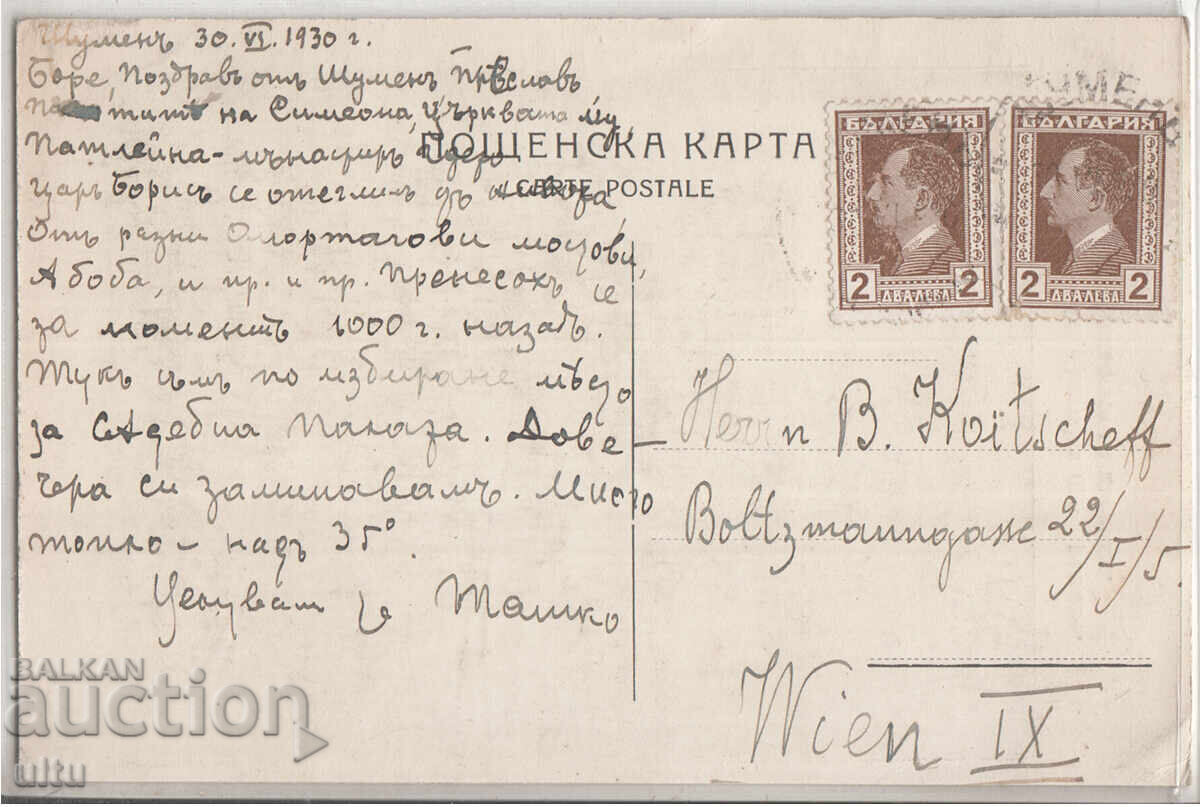 Шуменъ 30.VI.1930 г.
Боре, Поздравъ отъ Шуменъ, Прѣславъ,
на Симеона, Църквата му,
Патлейна - мънастиръ
царь Борисъ се отеглилъ
Отъ разни Омортагови
Абоба, и пр. и пр. Пренесохъ се
за моментъ 1000 г. назадъ.
Тукъ съмъ по избиране мѣсто
за Съдебна Палата. Дове-
чера си заминавамъ. Много
топло - надъ 35°.
Целувам те Ташко
ПОЩЕНСКА КАРТА
CARTE POSTALE
БЪЛГАРИЯ
2 ДВАЛЕВА 2
БЪЛГАРИЯ
2 ДВАЛЕВА 2
ШУМЕ
Herrn B. Koïtscheff
Boltzmanngasse 22/I/5.
Wien IX
BALKAN
auction
ultu